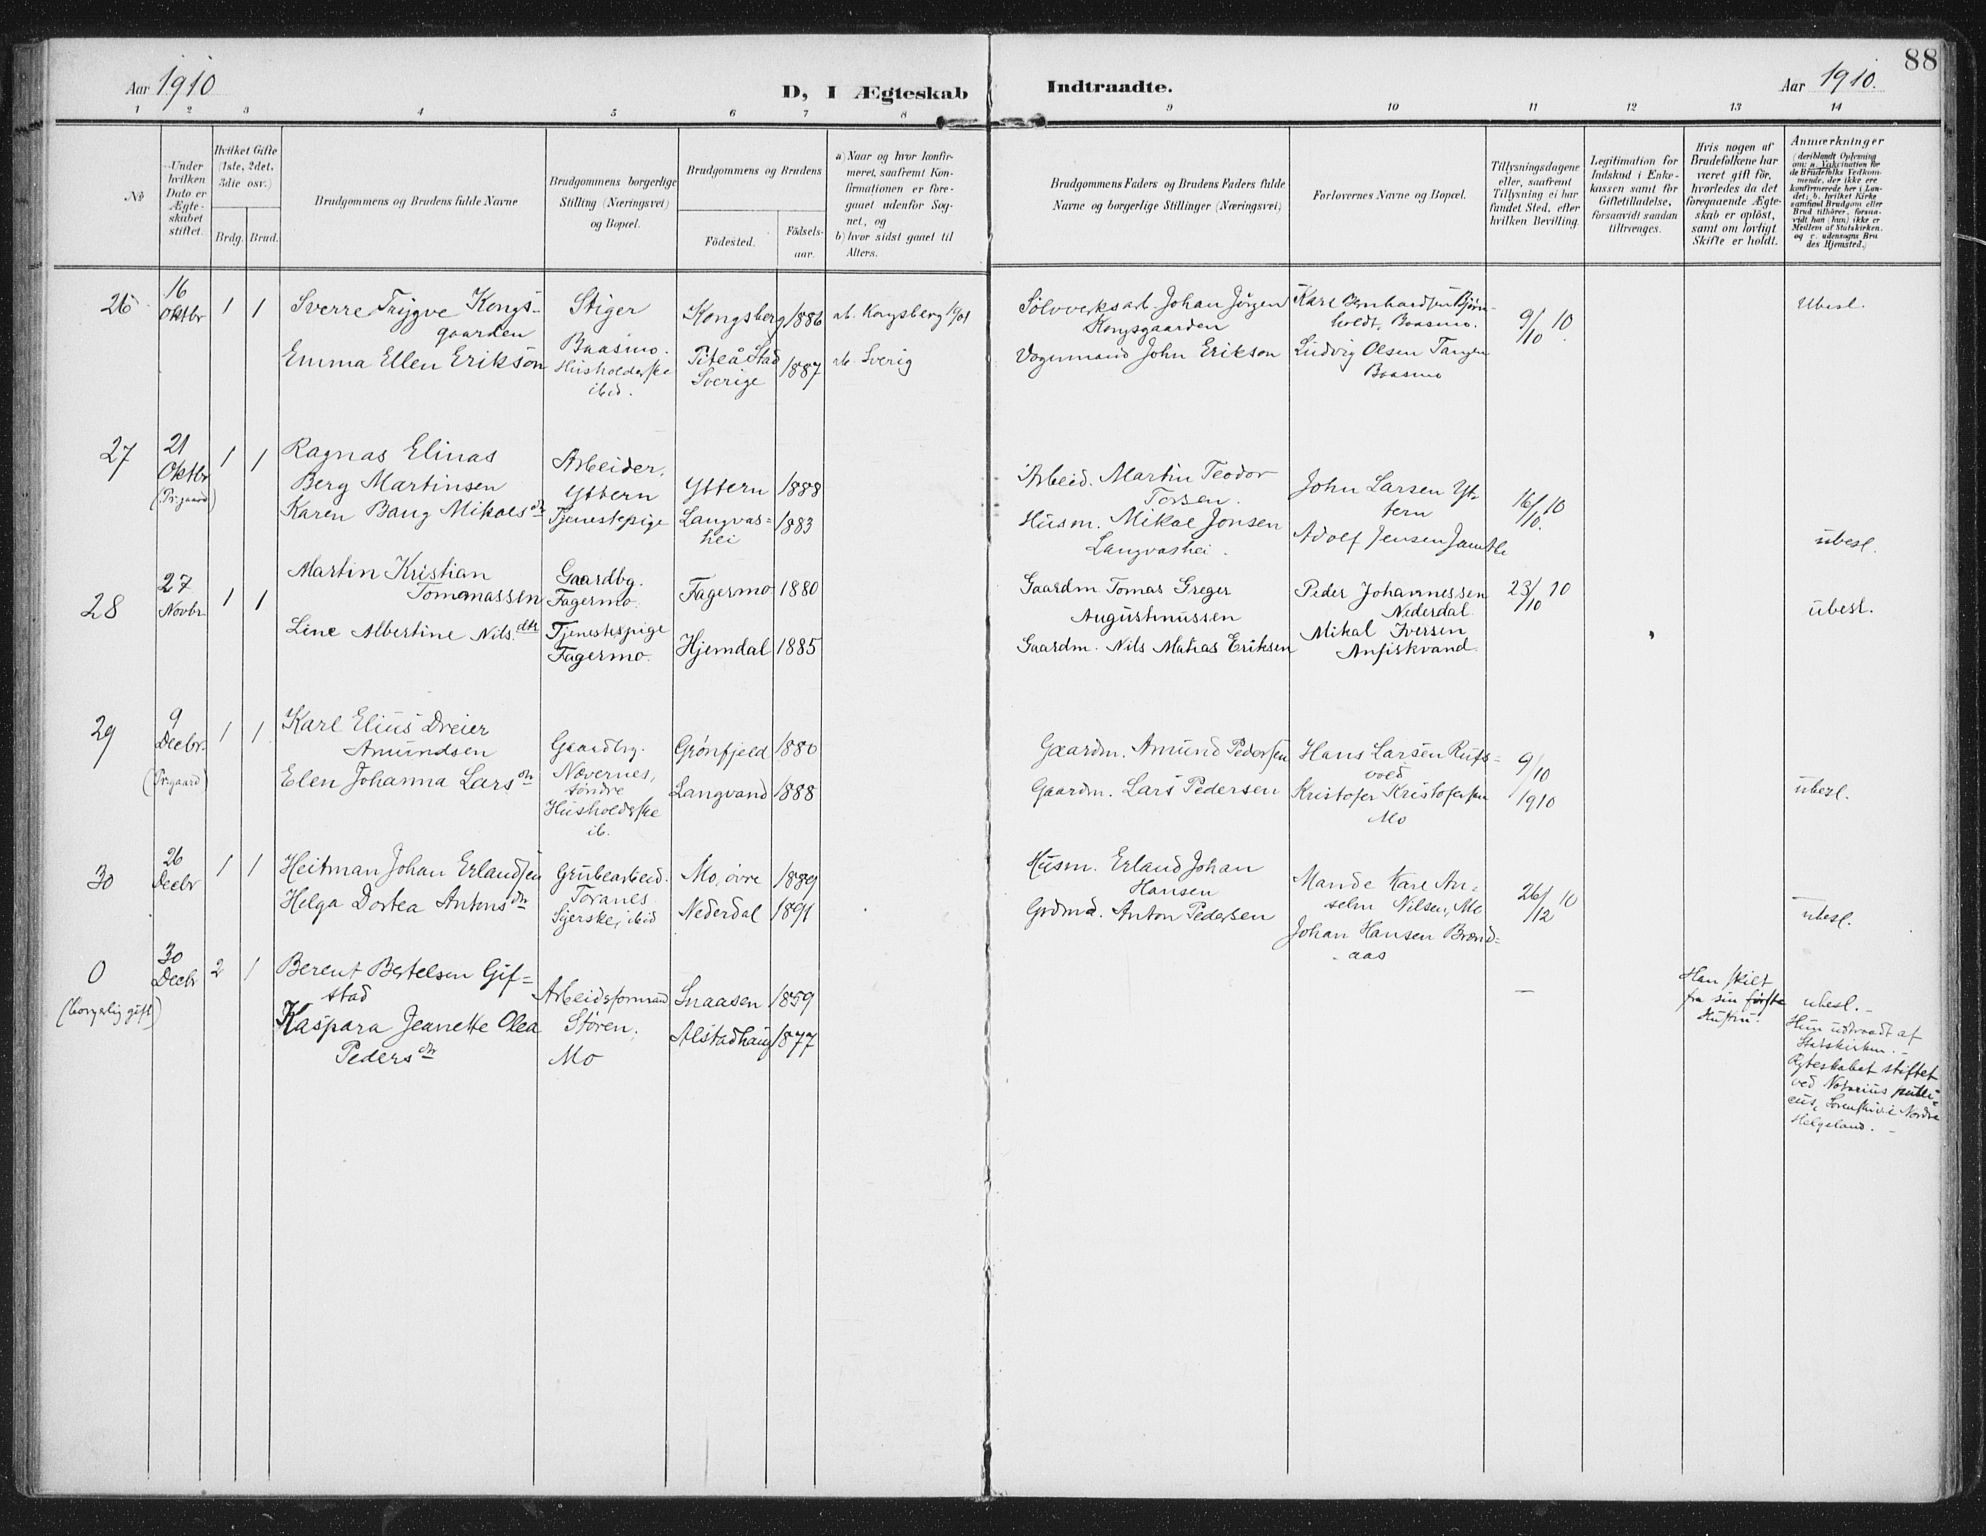 88
Aar 1910
D, I Ægteskab
Indtraadte.
Aar 1910.
1 2 3 4 5 6 7 8 9 10 11 12 13 14
No
Under hvilken Dato er Ægteskabet stiftet.
Hvilket Gifte (1ste, 2det, 3die osv.)
Brdg. Brud.
Brudgommens og Brudens fulde Navne
Brudgommens borgerlige Stilling (Næringsvei) og Bopæl.
Brudgommens og Brudens
Fødested.
Fødsels-
aar.
a) Naar og hvor konfir-
meret, saafremt Kon-
firmationen er fore-
gaaet udenfor Sog-
net, og
b) hvor sidst gaaet til
Alters.
Brudgommens Faders og Brudens Faders fulde
Navne og borgerlige Stillinger (Næringsvei)
Forlovernes Navne og Bopæl.
Tillysningsdagene
eller, saafremt
Tillysning ei har
fundet Sted, efter
hvilken Bevilling.
Legitimation for
Indskud i Enke-
kassen samt for
Giftetilladelse,
forsaavidt saadan
tiltrænges.
Hvis nogen af
Brudefolkene har
været gift før,
hvorledes da det
foregaaende Ægte-
skab er opløst,
samt om lovligt
Skifte er holdt.
Anmærkninger
(deriblandt Oplysning
om: a. Vakcination for
de Brudefolks Vedkom-
mende, der ikke ere
konfirmerede her i Lan-
det; b. hvilket Kirke
samfund Brudgom eller
Brud tilhører, forsaa-
vidt han (hun) ikke er
Medlem af Statskirken.
og c. udensogns Bru
des Hjemsted.)
26
16
Oktbr
1 1
Sverre Trygve Kongs-
gaarden
Emma Ellen Erikson
Stiger
Baasmo.
Husholderske
ibid.
Kongsberg 1886
Piteå Stad
Sverige 1887
ab. Kongsberg 1/10 01
ab Sverig
Sølvverksarb Johan Jörgen
Kongsgaarden
Vognmand John Erikson
Karl Bernhardsen Bjørn-
holdt, Baasmo.
Ludvig Olsen Tangen
Baasmo
9/10 10
Ubesl.
27
21
Oktbr
(Prgaard)
1 1
Ragnas Elinas
Berg Martinsen
Karen Baug Mikals dtr
Arbeider.
Yttern
Tjenestepige
Yttern 1888
Langvas-
hei 1883
Arbeid. Martin Teodor
Torsen.
Husm. Mikal Jonsen
Langvashei.
John Larsen Yt-
tern
Adolf Jensen Jamtli
16/10. 10
ubesl.
28
27
Novbr
1 1
Martin Kristian
Tommassen
Line Albertine Nils. dtr
Gaardbg.
Fagermo.
Tjenestepige
Fagermo.
Fagermo 1880
Hjemdal 1885
Gaardm Tomas Greger
Augustinussen
Gaardm. Nils Matias Eriksen
Peder Johannessen
Nederdal.
Mikal Iversen
Anfiskvand.
23/10 10
ubesl.
29
9
Decbr.
(Prgaard)
1 1
Karl Elius Dreier
Amundsen
Elen Johanna Lars dtr
Gaardbg.
Nævernes,
søndre
Husholderske
ib.
Grønfjeld 1880
Langvand 1888
Gaardm. Amund Pedersen
Gaardm. Lars Pedersen
Hans Larsen Rufs-
vold
Kristofer Kristofersen
Mo
9/10
1910
ubesl.
30
26
Decbr
1 1
Heitman Johan Erlandsen
Helga Dortea Antons dtr
Grubearbeid.
Toranes
Syerske, ibid
Mo, øvre 1889
Nederdal 1891
Husm. Erland Johan
Hansen
Grdmd. Anton Pedersen
Mande Karl An-
selm Nilsen, Mo
Johan Hansen Brænd-
aas
26/12 10
ubesl.
0
(borgerlig gift)
30
Decbr
2 1
Berent Bertelsen Gif-
stad
Kaspara Jeanette Olea
Peders dtr
Arbeidsformand
Støren.
Mo
Snaasen 1859
Alstadhaug 1877
—
Han skilt
fra sin første
Hustru.
ubesl. –
Hun udtraadt af
Statskirken. –
Ægteskabet stiftet
ved Notarius publi-
cus, Sorenskriv i Nordre
Helgeland. –